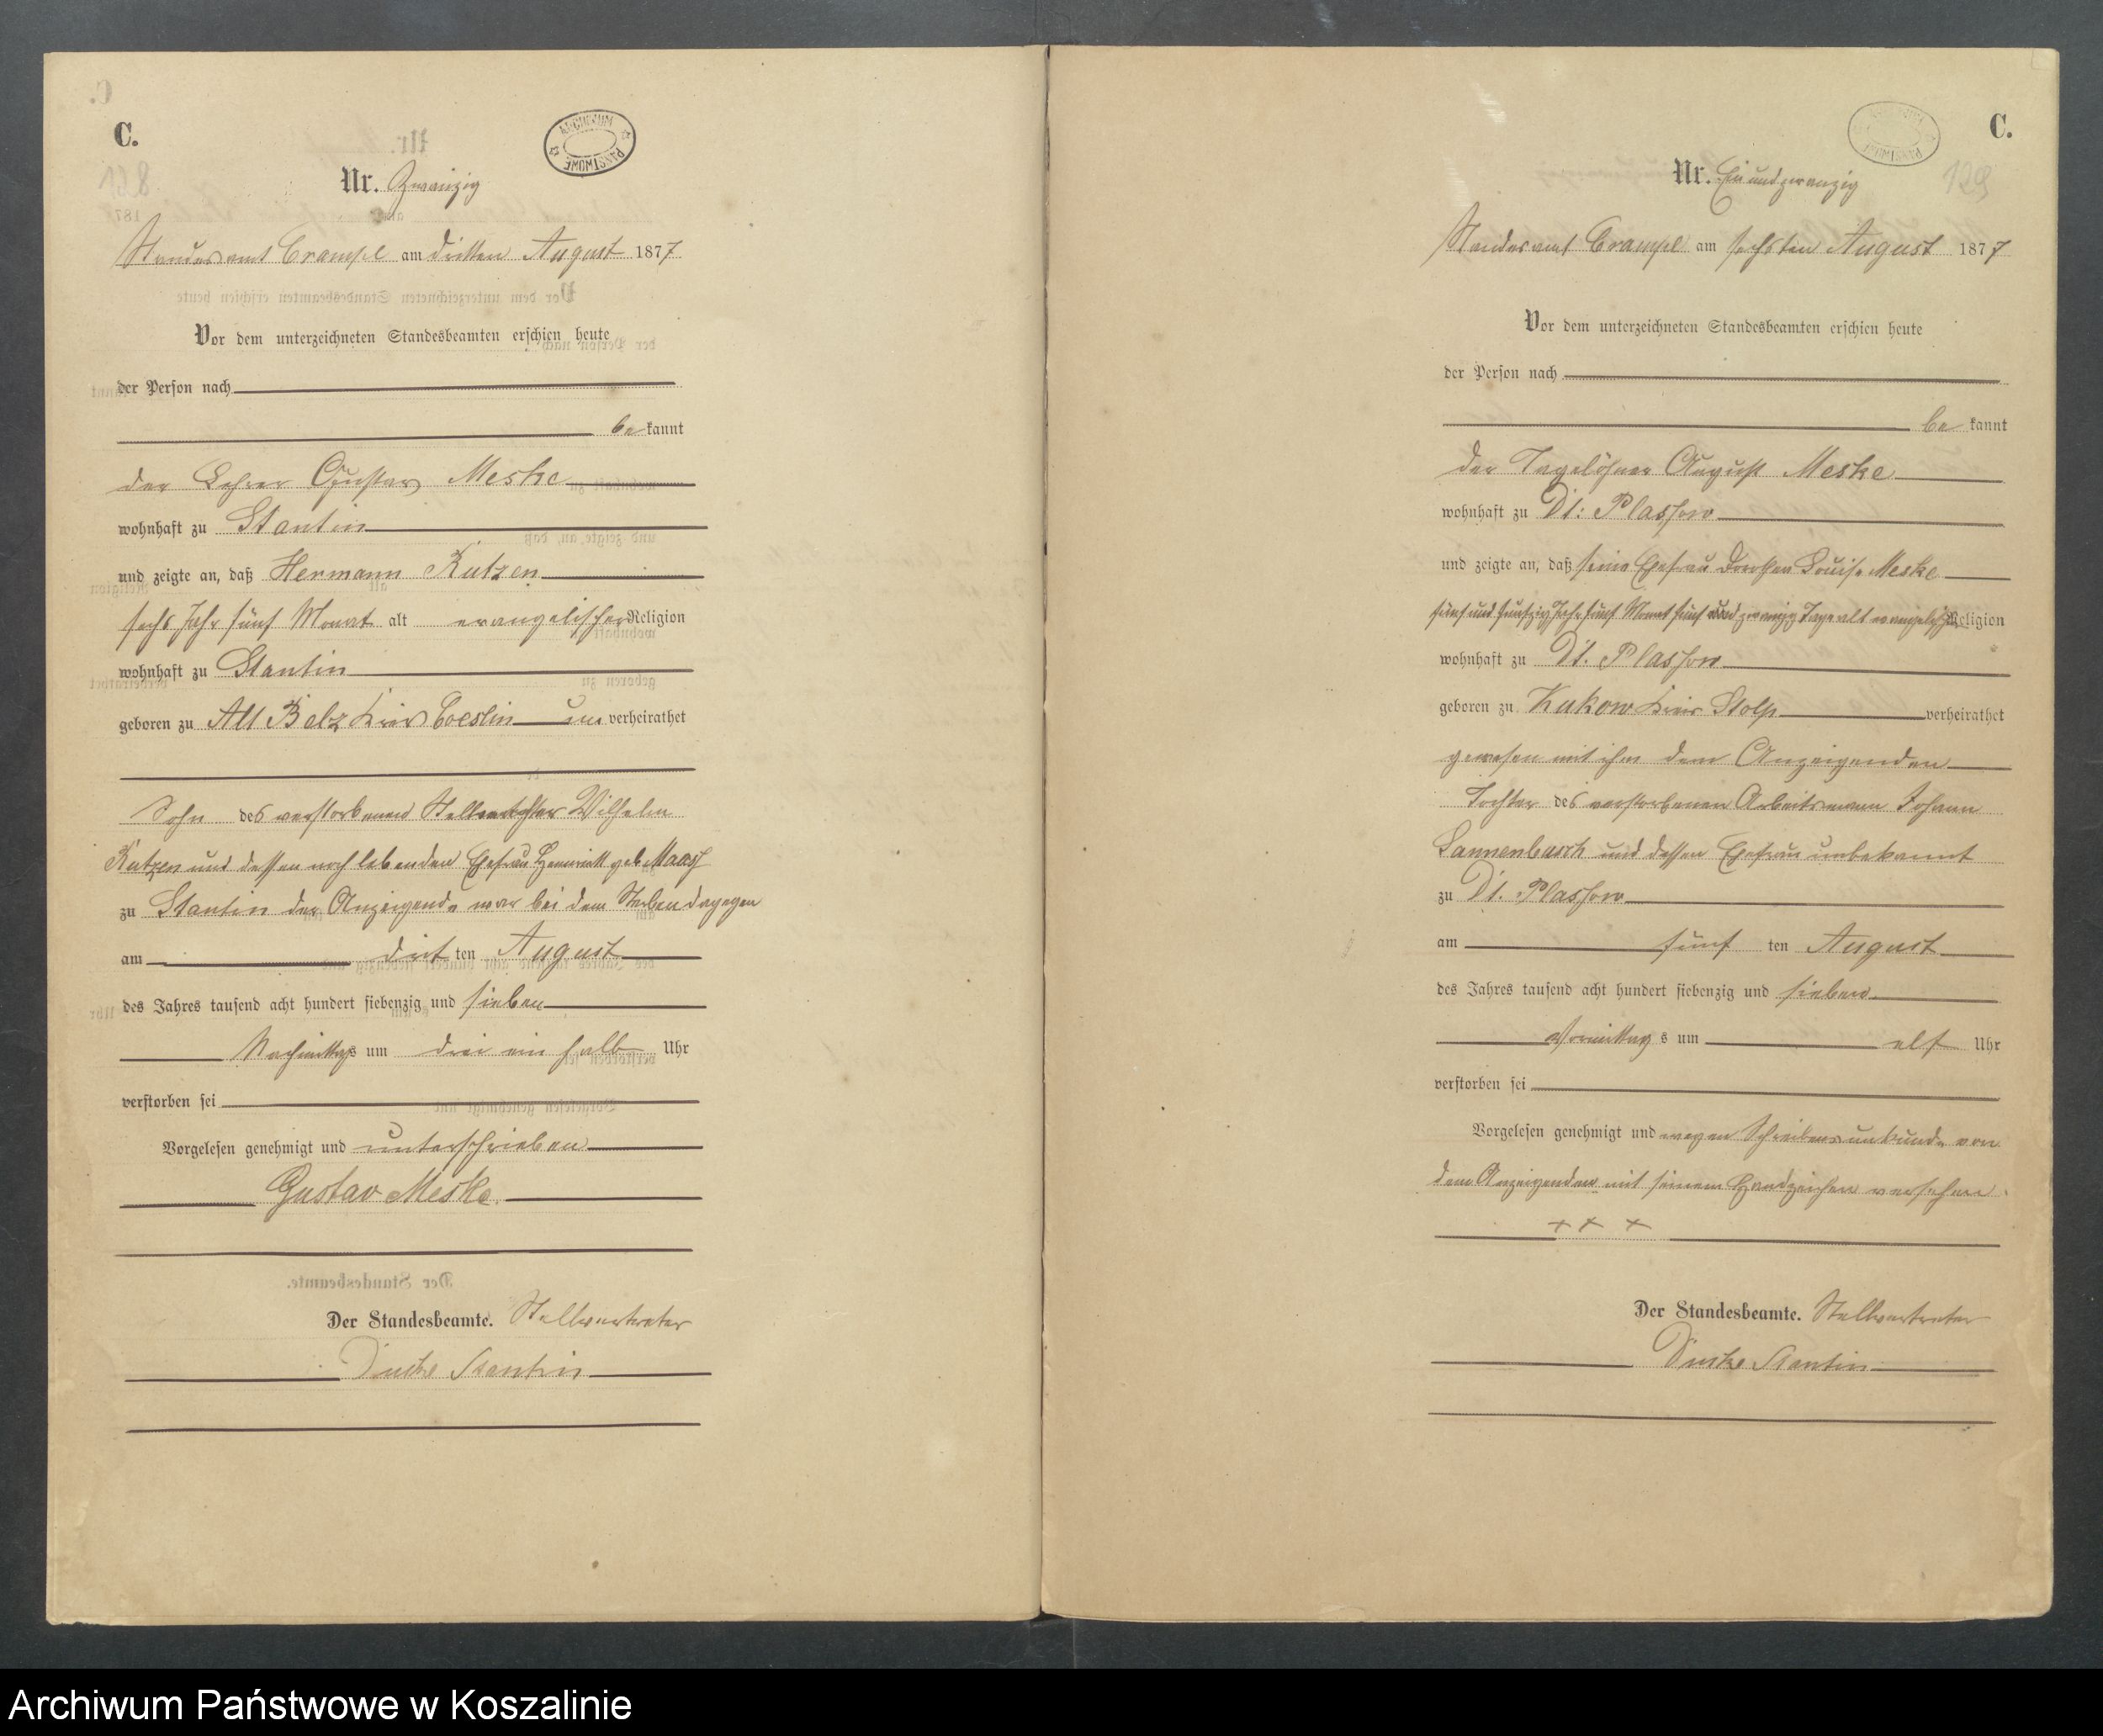 C.
ARCHIWUM PAŃSTWOWE
Nr. Zwanzig
Standesamt Crampe am dritten August 1877
Vor dem unterzeichneten Standesbeamten erschien heute
der Person nach
be kannt
der Lehrer Gustav Meske
wohnhaft zu Stantin
und zeigte an, daß Hermann Kutzen
sechs Jahr fünf Monat alt evangelischer Religion
wohnhaft zu Stantin
geboren zu Alt Belz Kreis Coeslin un verheirathet
Sohn des verstorbenen Wilhelm
Kutzen und dessen noch lebenden Ehefrau geb Maass
zu Stantin der Anzeigende war bei dem Sterben dagegen
am drit ten August
des Jahres tausend acht hundert siebenzig und sieben
Nachmittags um drei ein halb Uhr
verstorben sei
Vorgelesen genehmigt und unterschrieben
Gustav Meske
Der Standesbeamte. Stellvertreter
Stantin
C.
129
Nr. Ein und zwanzig
Standesamt Crampe am sechsten August 1877
Vor dem unterzeichneten Standesbeamten erschien heute
der Person nach
be kannt
der Tagelöhner August Meske
wohnhaft zu Dt: Plassow
und zeigte an, daß seine Ehefrau Dorothea Louise Meske
fünf und fünfzig Jahr fünf Monat fünf und zwanzig Tage alt evangelischer Religion
wohnhaft zu Dt. Plassow
geboren zu Kukow Kreis Stolp verheirathet
gewesen mit ihm dem Anzeigenden
Tochter des verstorbenen Arbeitsmann Johann
Lannenbusch und dessen Ehefrau unbekannt
zu Dt. Plassow
am fünf ten August
des Jahres tausend acht hundert siebenzig und sieben
Vormittag s um elf Uhr
verstorben sei
Vorgelesen genehmigt und wegen Schreibensunkunde von
dem Anzeigenden mit seinem Handzeichen versehen.
+ + +
Der Standesbeamte. Stellvertreter
Stantin
Archiwum Państwowe w Koszalinie